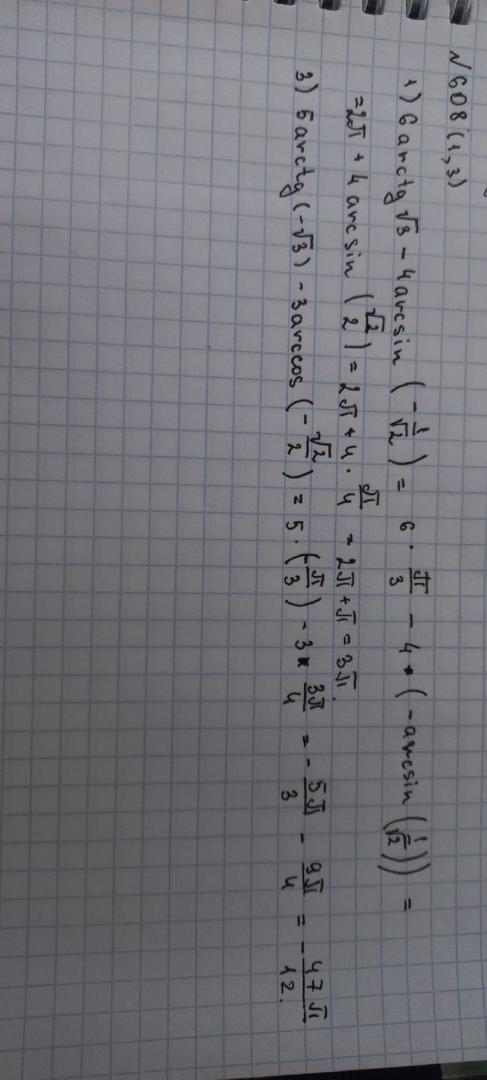 №608 (1,3)
1) 6 arctg √3 - 4 arcsin (-1/√2) = 6 · π/3 - 4 · (-arcsin (1/√2)) =
= 2π + 4 arcsin (√2/2) = 2π + 4 · π/4 = 2π + π = 3π.
3) 5 arctg (-√3) - 3 arccos (-√2/2) = 5 · (-π/3) - 3 · 3π/4 = -5π/3 - 9π/4 = -47π/12.